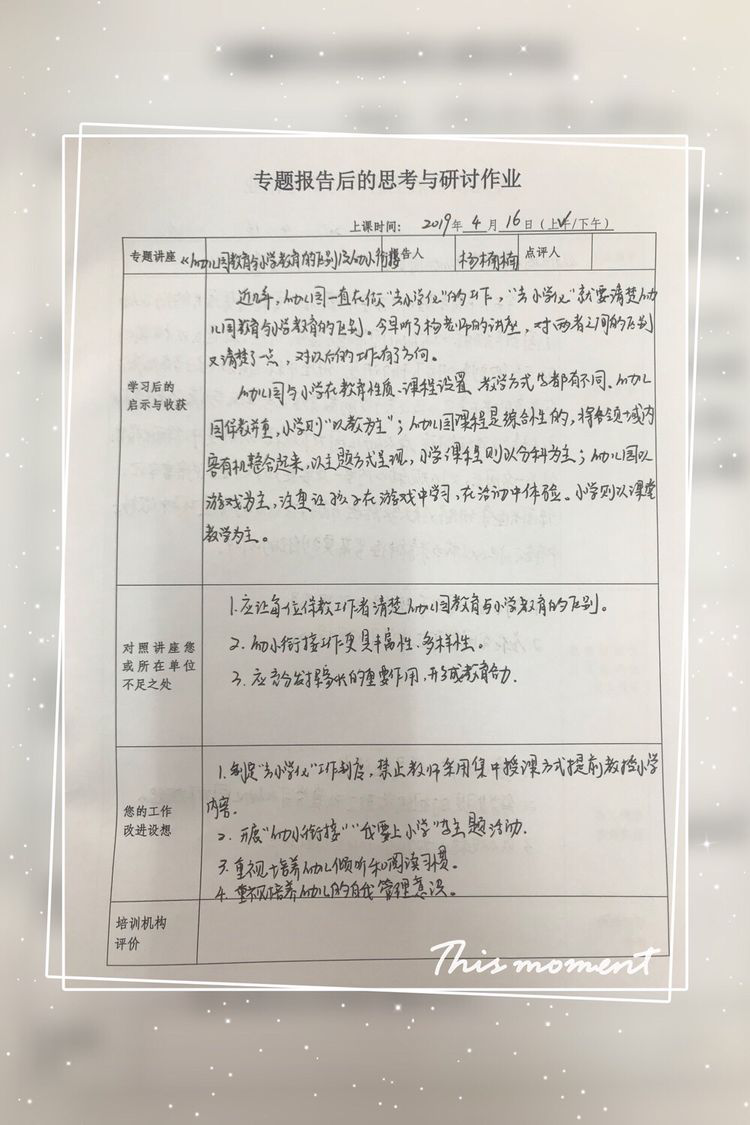 专题报告后的思考与研讨作业
上课时间: 2019年 4 月 16 日(上午√/下午)
专题讲座 《幼儿园教育与小学教育的区别及幼小衔接 报告人 杨楠楠 点评人
学习后的
启示与收获
近几年,幼儿园一直在做“去小学化”的工作,“去小学化”就要清楚幼
儿园教育与小学教育的区别。今早听了杨老师的讲座,对两者之间的区别
又清楚了一点,对以后的工作有了方向。
幼儿园与小学在教育性质、课程设置、教学方式等都有不同。幼儿
园保教并重,小学则“以教为主”;幼儿园课程是综合性的,将各领域内
容有机整合起来,以主题方式呈现,小学课程则以分科为主;幼儿园以
游戏为主,注重让孩子在游戏中学习,在活动中体验。小学则以课堂
教学为主。
对照讲座您
或所在单位
不足之处
1. 应让每一位保教工作者清楚幼儿园教育与小学教育的区别。
2. 幼小衔接工作更具丰富性、多样性。
3. 应充分发挥家长的重要作用,形成教育合力.
您的工作
改进设想
1. 制定“去小学化”工作制度,禁止教师采用集中授课方式提前教授小学
内容.
2. 开展“幼小衔接”“我要上小学”等主题活动.
3. 重视培养幼儿倾听和阅读习惯。
4. 重视培养幼儿的自我管理意识。
培训机构
评价
This moment